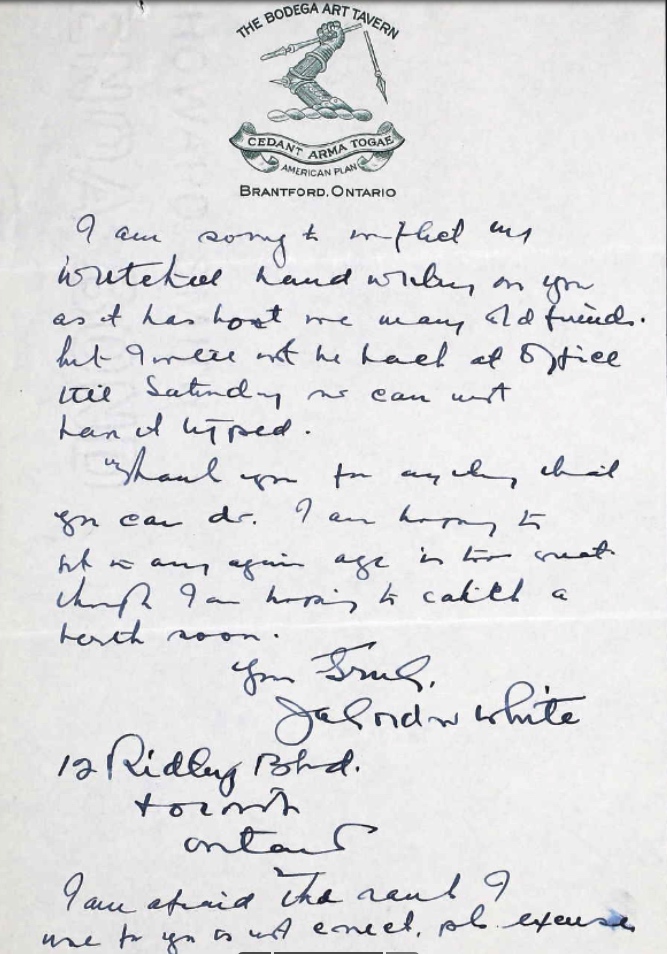 THE BODEGA ART TAVERN
CEDANT ARMA TOGAE
AMERICAN PLAN
BRANTFORD, ONTARIO
I am sorry to inflict my
wretched hand writing on you
as it has lost me many old friends.
but I will not be back at office
till Saturday so can not
have it typed.
Thank you for anything that
you can do. I am hoping to
in army again age is too great
though I am hoping to catch a
berth soon.
Yours Truly,
White
12 Ridley Blvd.
Toronto
Ontario
I am afraid the rank I
use to you is not correct, pls excuse